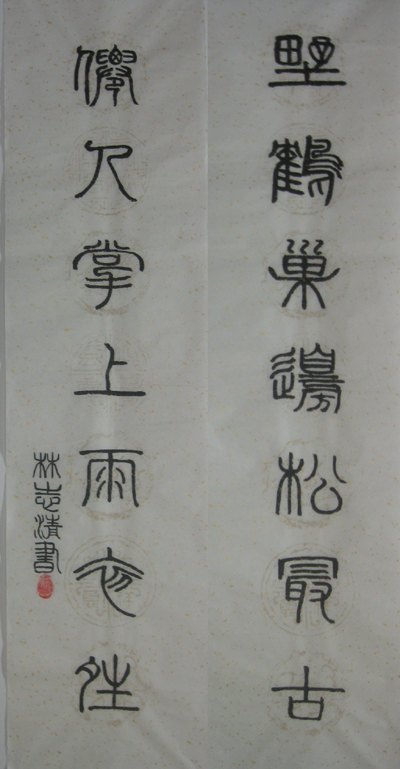 野鶴巢邊松最古
僊人掌上雨初夝
林志清書